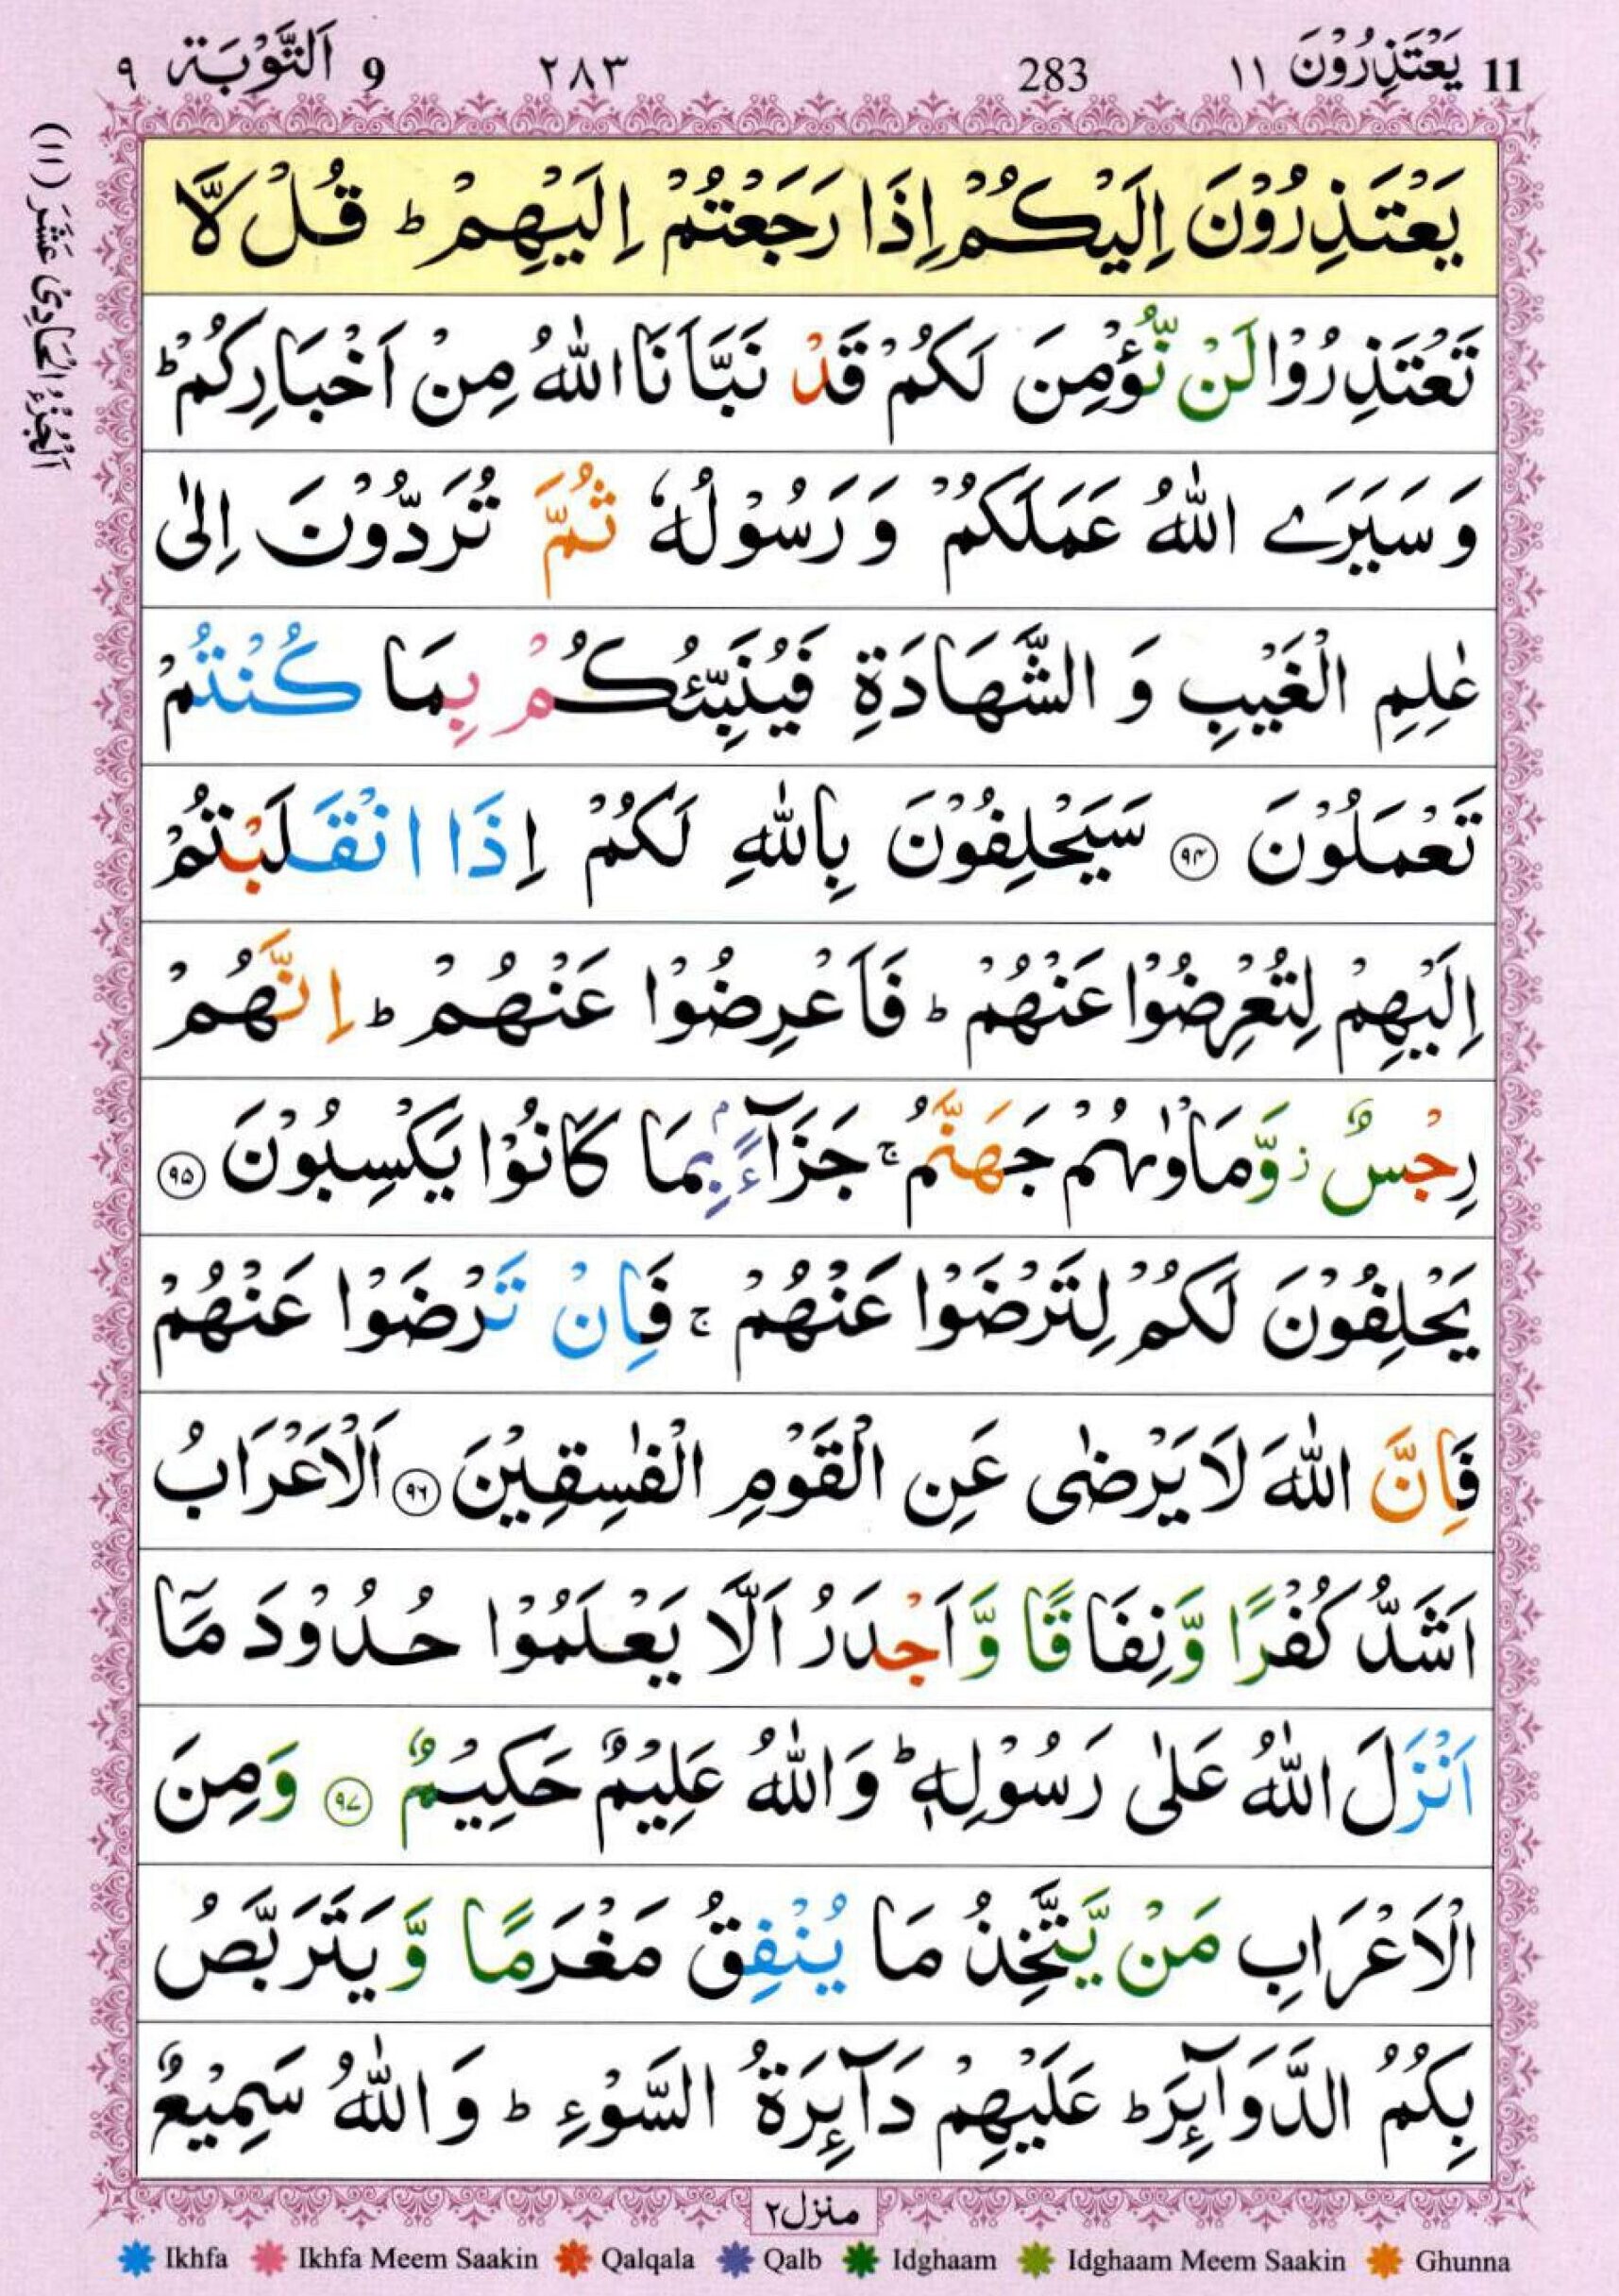 11 يَعْتَذِرُوْنَ ١١ 283 ٢٨٣ 9 اَلتَّوْبَة ٩
اَلْجُزْءُ الْحَادِىْ عَشَرَ (١١)
يَعْتَذِرُوْنَ اِلَيْكُمْ اِذَا رَجَعْتُمْ اِلَيْهِمْ ؕ قُلْ لَّا
تَعْتَذِرُوْا لَنْ نُّؤْمِنَ لَكُمْ قَدْ نَبَّاَنَا اللّٰهُ مِنْ اَخْبَارِكُمْ ؕ
وَ سَيَرَى اللّٰهُ عَمَلَكُمْ وَ رَسُوْلُهٗ ثُمَّ تُرَدُّوْنَ اِلٰى
عٰلِمِ الْغَيْبِ وَ الشَّهَادَةِ فَيُنَبِّئُكُمْ بِمَا كُنْتُمْ
تَعْمَلُوْنَ ۹۴ سَيَحْلِفُوْنَ بِاللّٰهِ لَكُمْ اِذَا انْقَلَبْتُمْ
اِلَيْهِمْ لِتُعْرِضُوْا عَنْهُمْ ؕ فَاَعْرِضُوْا عَنْهُمْ ؕ اِنَّهُمْ
رِجْسٌ ز وَّمَاْوٰىهُمْ جَهَنَّمُ ۚ جَزَآءًۢ بِمَا كَانُوْا يَكْسِبُوْنَ ۹۵
يَحْلِفُوْنَ لَكُمْ لِتَرْضَوْا عَنْهُمْ ۚ فَاِنْ تَرْضَوْا عَنْهُمْ
فَاِنَّ اللّٰهَ لَا يَرْضٰى عَنِ الْقَوْمِ الْفٰسِقِيْنَ ۹۶ اَلْاَعْرَابُ
اَشَدُّ كُفْرًا وَّنِفَاقًا وَّاَجْدَرُ اَلَّا يَعْلَمُوْا حُدُوْدَ مَآ
اَنْزَلَ اللّٰهُ عَلٰى رَسُوْلِهٖ ؕ وَاللّٰهُ عَلِيْمٌ حَكِيْمٌ ۹۷ وَمِنَ
الْاَعْرَابِ مَنْ يَّتَّخِذُ مَا يُنْفِقُ مَغْرَمًا وَّيَتَرَبَّصُ
بِكُمُ الدَّوَآئِرَ ؕ عَلَيْهِمْ دَآئِرَةُ السَّوْءِ ؕ وَاللّٰهُ سَمِيْعٌ
منزل۲
Ikhfa Ikhfa Meem Saakin Qalqala Qalb Idghaam Idghaam Meem Saakin Ghunna